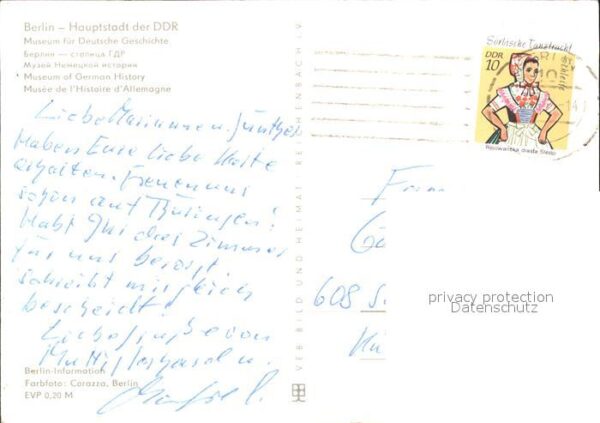 Berlin – Hauptstadt der DDR
Museum für Deutsche Geschichte
Берлин — столица ГДР
Музей Немецкой истории
Museum of German History
Musée de l'Histoire d'Allemagne
Liebe Marianne u. Günther
Haben Eure liebe Karte
erhalten. Freuen uns
schon auf Thüringen!
Habt Ihr das Zimmer
für uns besorgt
schreibt mir gleich
bescheid!
Liebe Grüße von
Berlin-Information
Farbfoto: Carazza, Berlin
EVP 0,20 M
VEB BILD UND HEIMAT REICHENBACH I. V.
Sorbische Tanztracht
DDR
10
608 S
privacy protection
Datenschutz